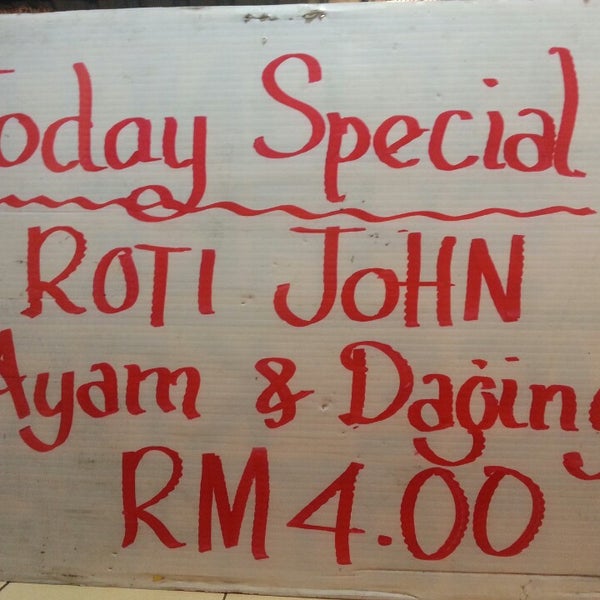 Today Special
ROTI JOHN
Ayam & Daging
RM4.00